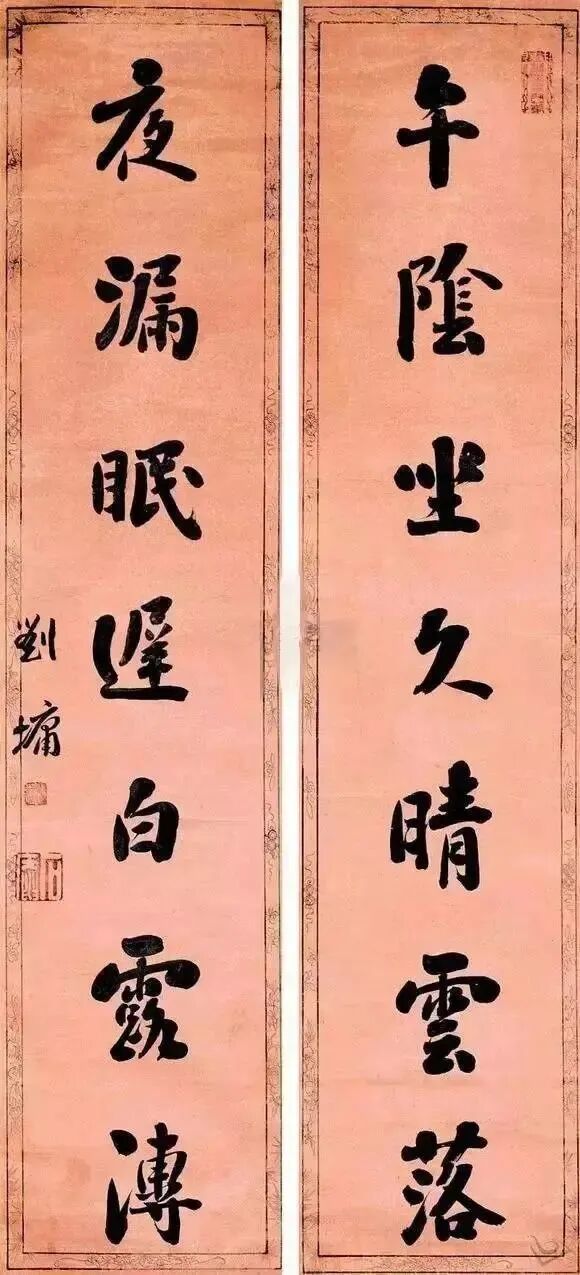 午陰坐久晴雲落
夜漏眠遲白露漙
劉墉